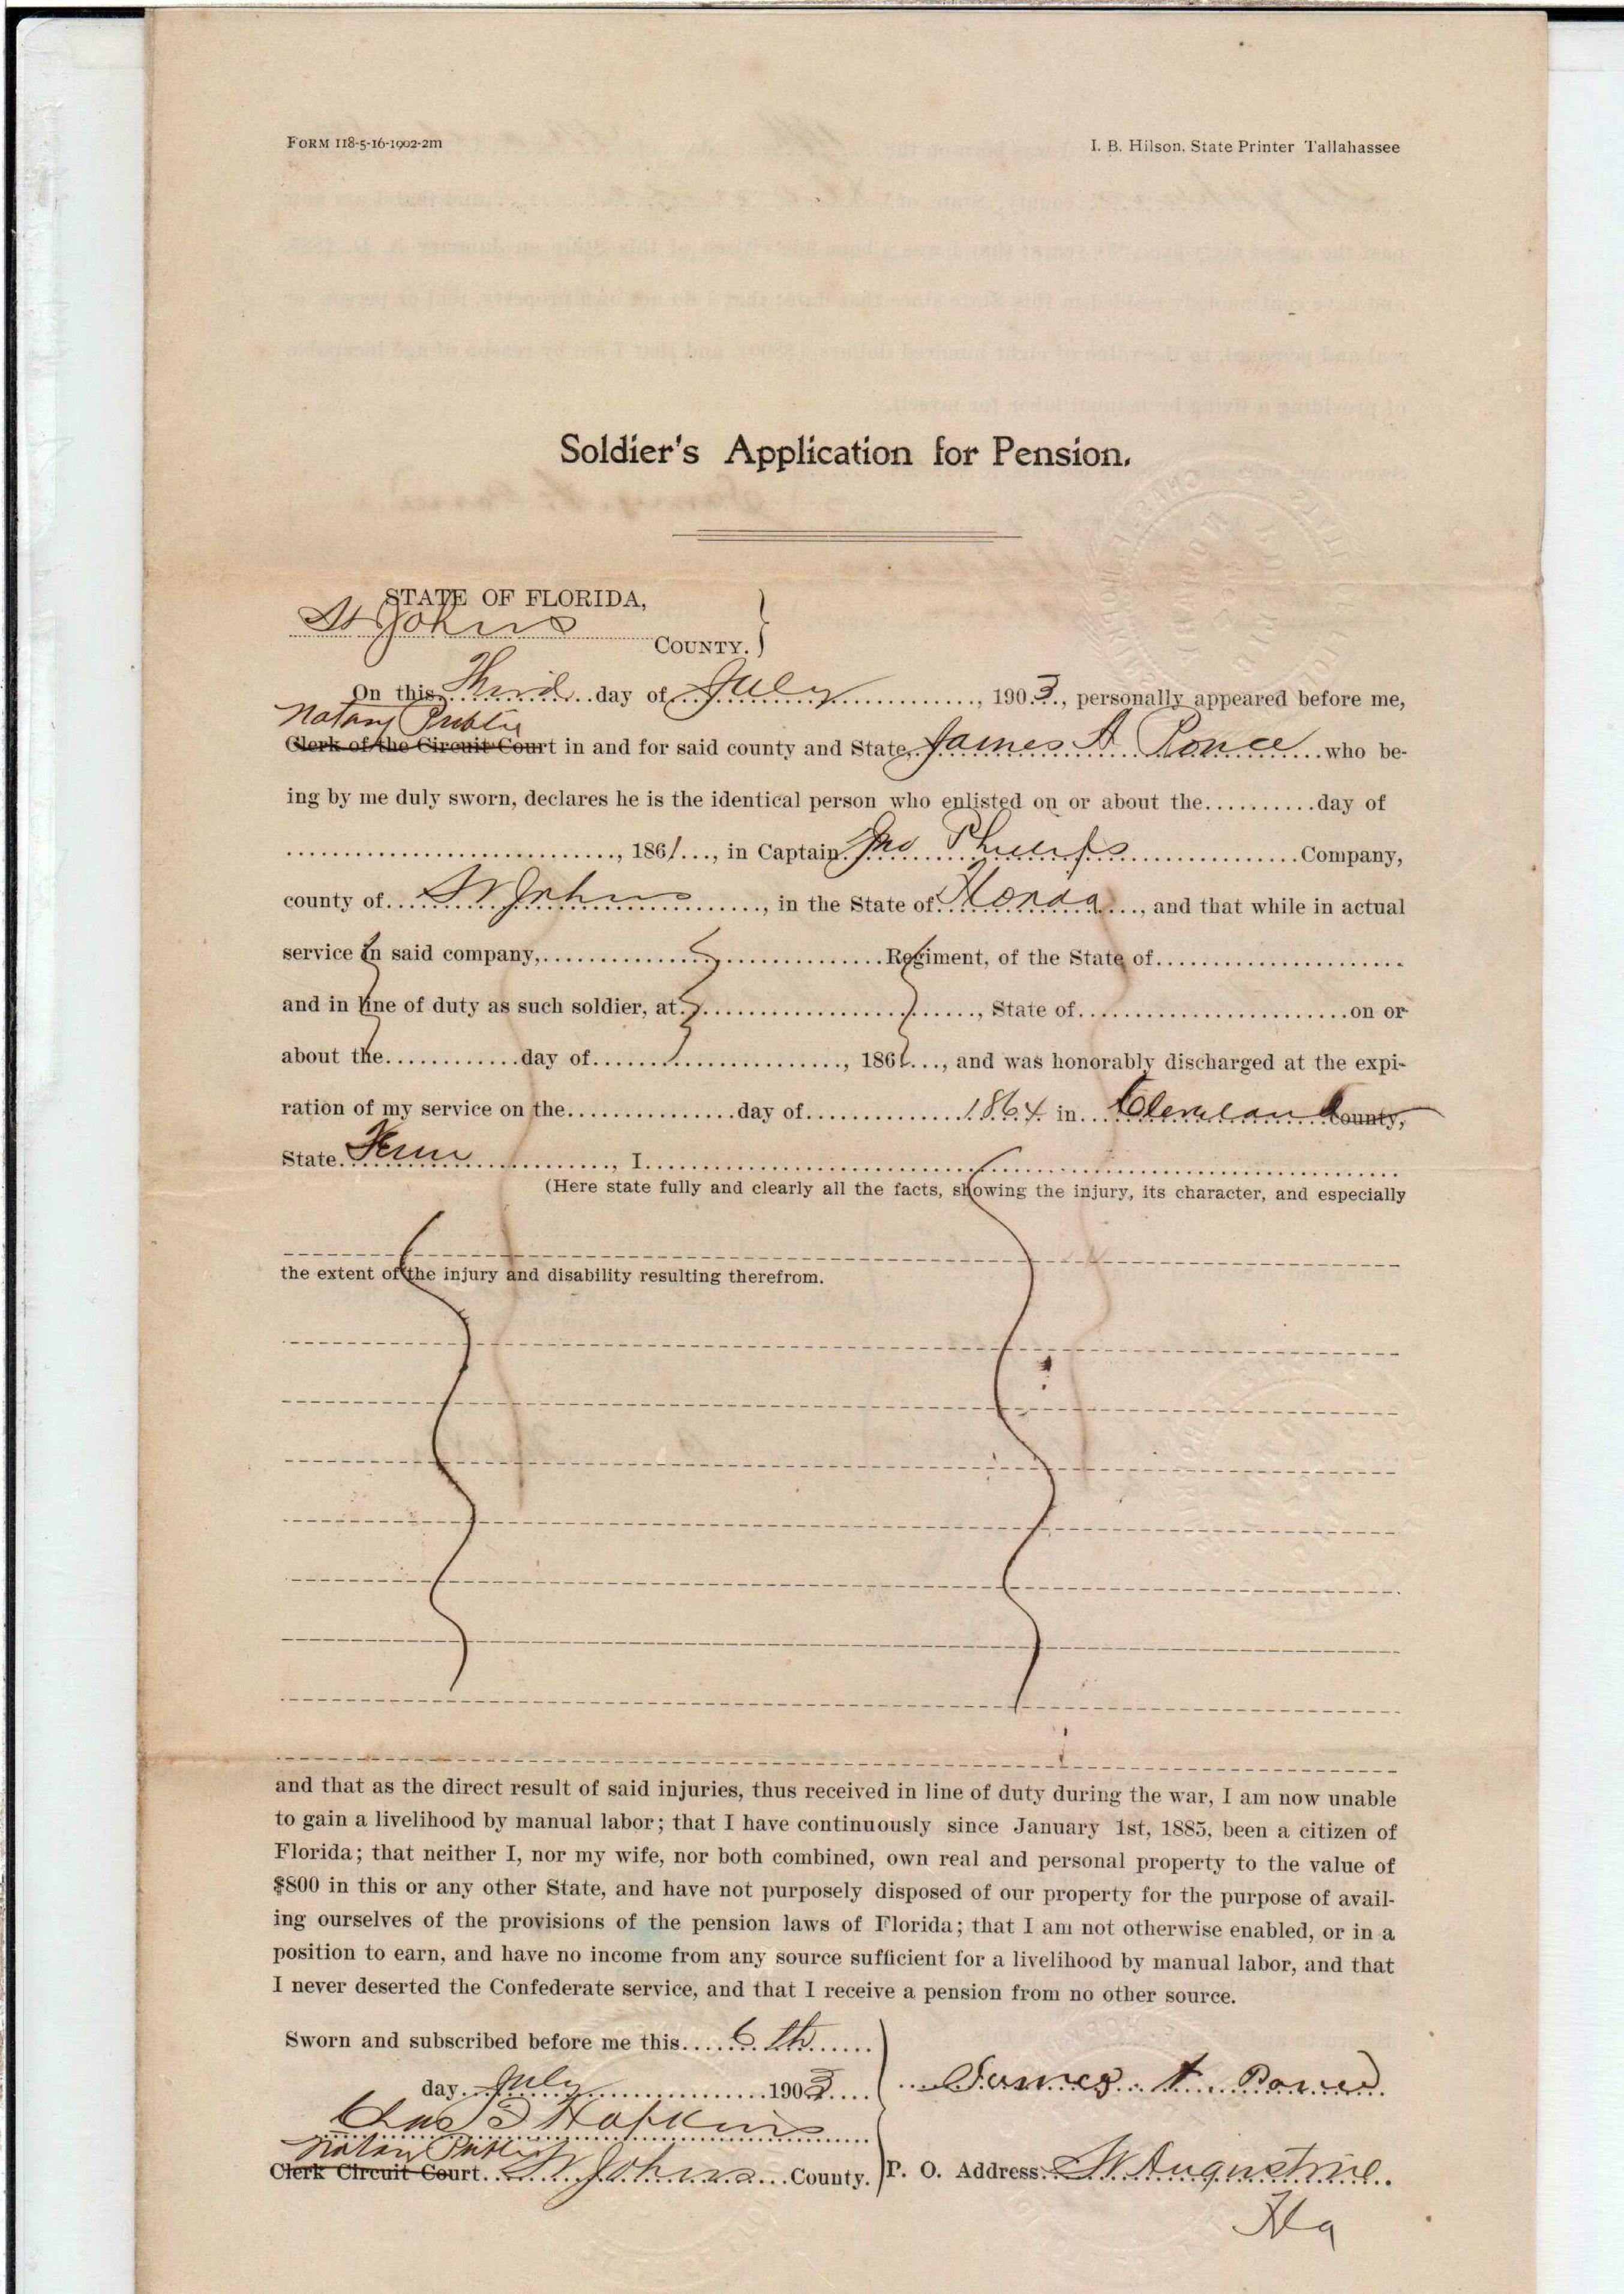 FORM 118-5-16-1902-2m
I. B. Hilson, State Printer Tallahassee
Soldier's Application for Pension.
STATE OF FLORIDA,
St Johns COUNTY.
On this Third day of July, 1903, personally appeared before me,
Notary Public
Clerk of the Circuit Court in and for said county and State, James A Ponce who be-
ing by me duly sworn, declares he is the identical person who enlisted on or about the..........day of
............................, 1861..., in Captain Jno Phillips Company,
county of St Johns, in the State of Florida, and that while in actual
service in said company,............................Regiment, of the State of......................
and in line of duty as such soldier, at........................, State of........................on or
about the............day of......................, 186..., and was honorably discharged at the expi-
ration of my service on the...............day of..............1864 in Cleveland County,
State Tenn, I......................................................................
(Here state fully and clearly all the facts, showing the injury, its character, and especially
the extent of the injury and disability resulting therefrom.
and that as the direct result of said injuries, thus received in line of duty during the war, I am now unable
to gain a livelihood by manual labor; that I have continuously since January 1st, 1885, been a citizen of
Florida; that neither I, nor my wife, nor both combined, own real and personal property to the value of
$800 in this or any other State, and have not purposely disposed of our property for the purpose of avail-
ing ourselves of the provisions of the pension laws of Florida; that I am not otherwise enabled, or in a
position to earn, and have no income from any source sufficient for a livelihood by manual labor, and that
I never deserted the Confederate service, and that I receive a pension from no other source.
Sworn and subscribed before me this 6th
day July 1903
James A. Ponce
Chas Hopkins
Notary Public
Clerk Circuit Court St Johns County.
P. O. Address St Augustine.
Fla